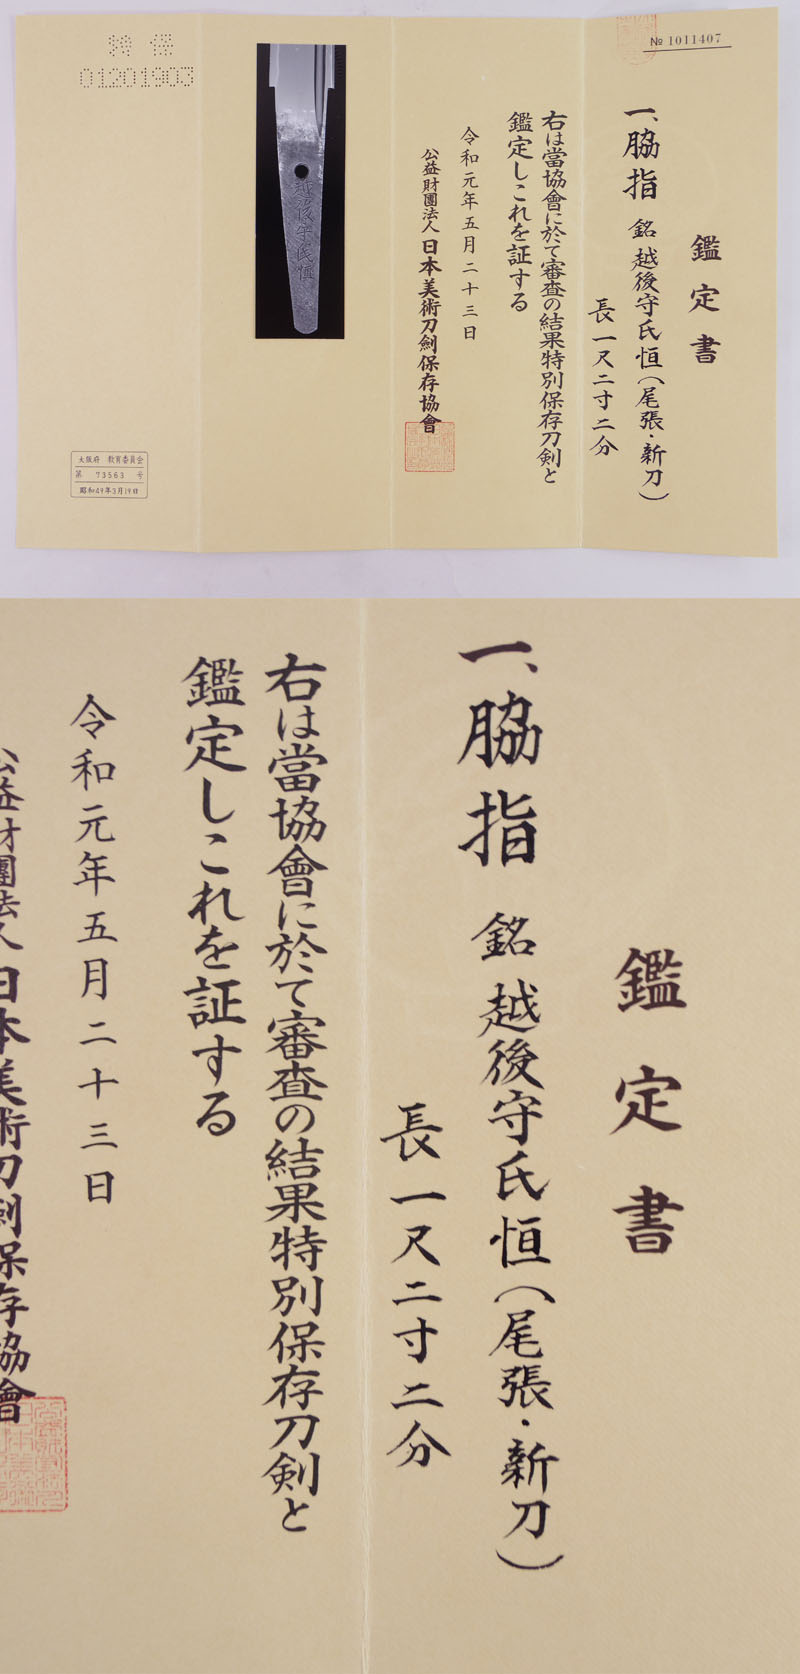 № 1011407
鑑定書
一、脇指 銘 越後守氏恒(尾張・新刀)
長一尺二寸二分
右は當協會に於て審査の結果特別保存刀剣と
鑑定しこれを証する
令和元年五月二十三日
公益財團法人日本美術刀劍保存協會
越後守氏恒
特保
01201903
大阪府 教育委員会
第 73563 号
昭和49年3月19日
鑑定書
一、脇指 銘 越後守氏恒(尾張・新刀)
長一尺二寸二分
右は當協會に於て審査の結果特別保存刀剣と
鑑定しこれを証する
令和元年五月二十三日
公益財團法人日本美術刀劍保存協會